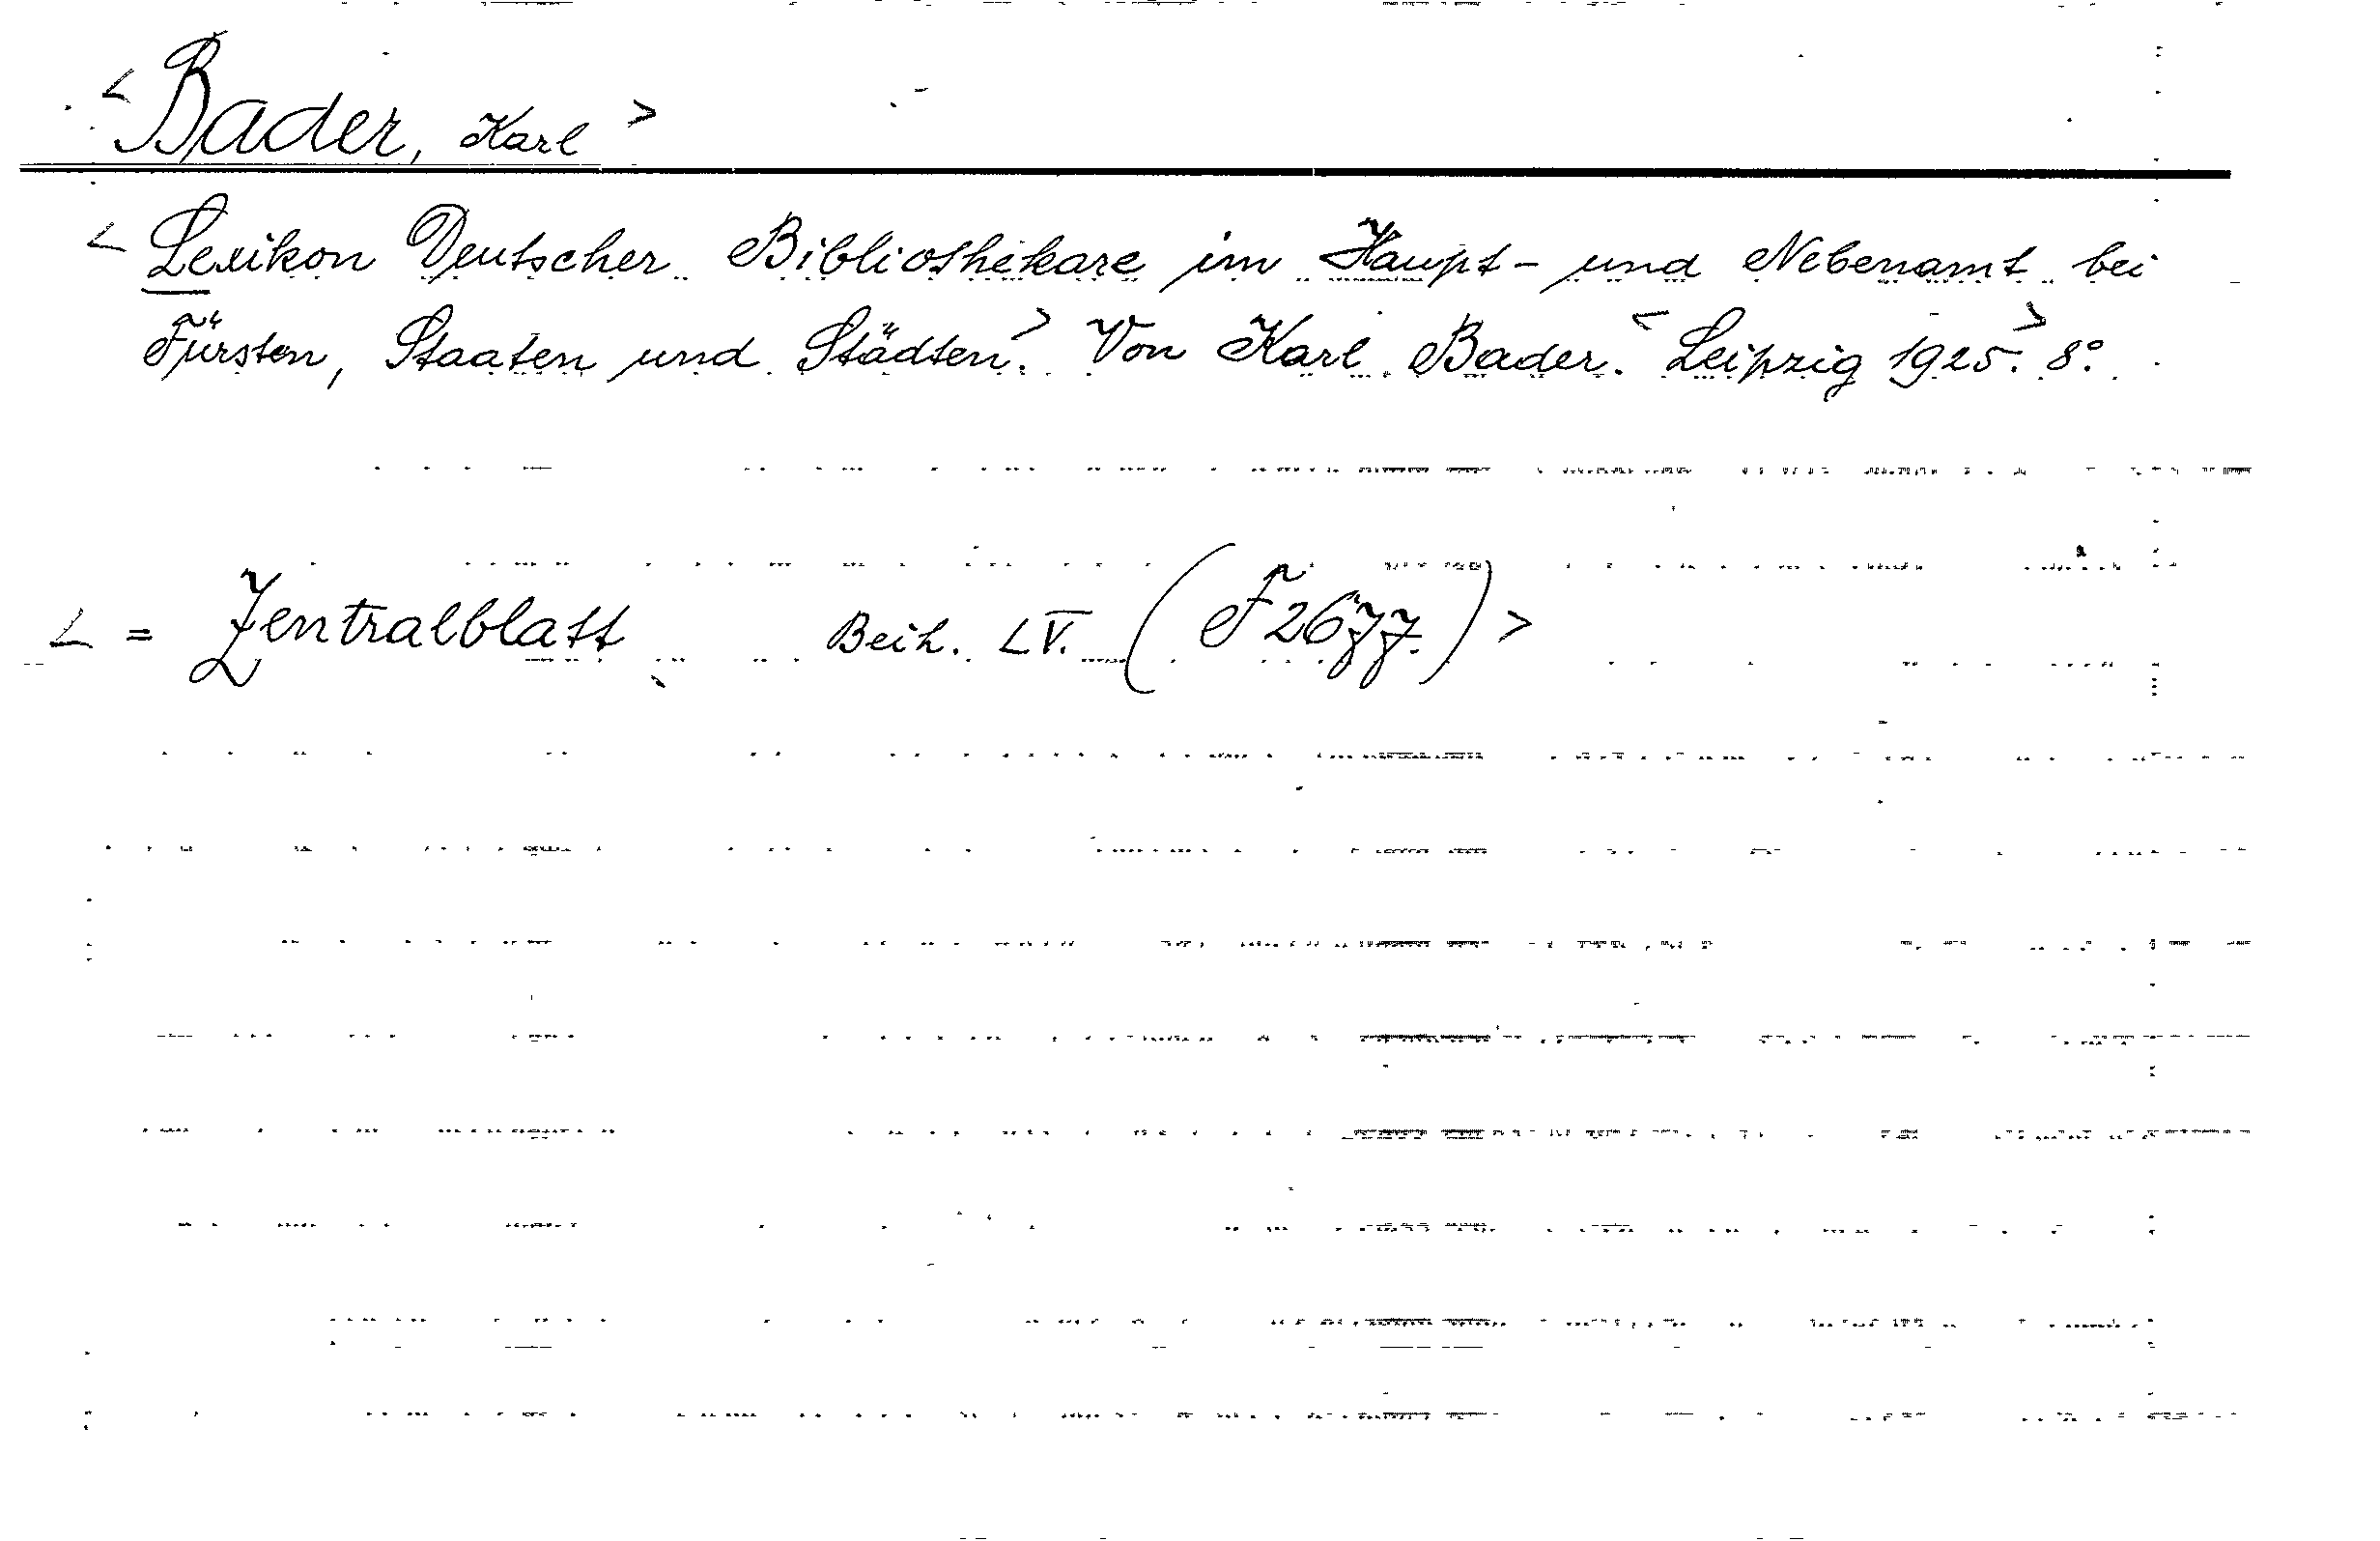 <Bader, Karl>
<Lexikon Deutscher Bibliothekare im Haupt- und Nebenamt bei
Fürsten, Staaten und Städten>. Von Karl Bader. <Leipzig 1925>. 8°.
<= Zentralblatt Beih. LV. (F 2677.)>